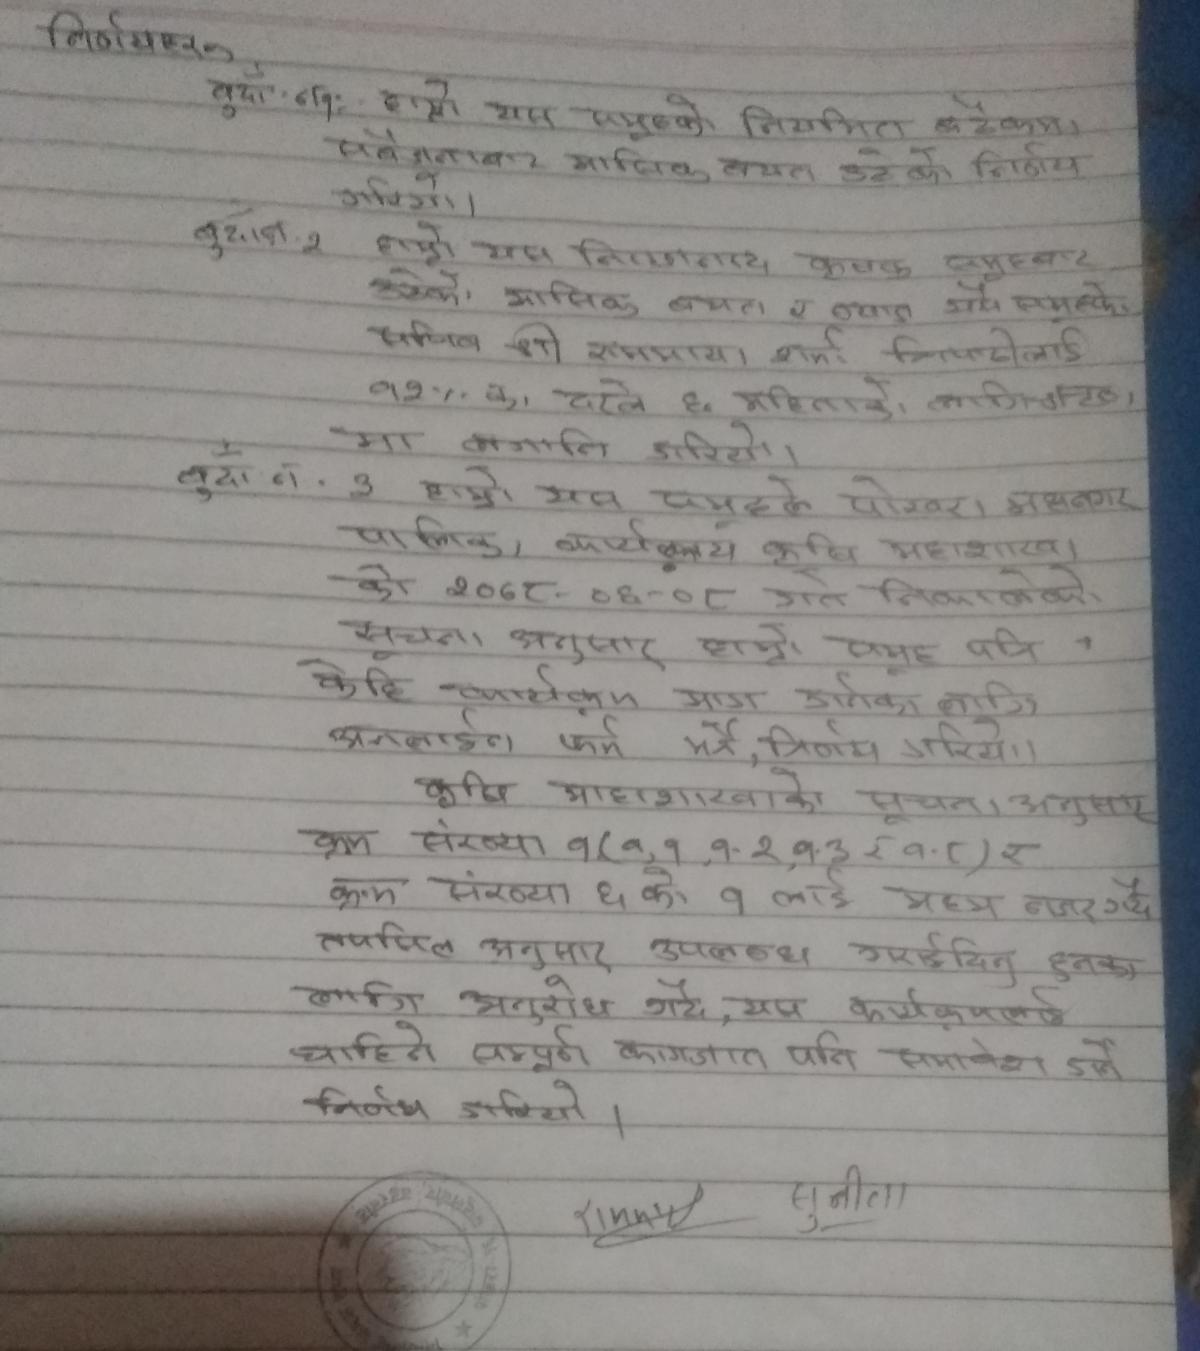 निर्णयहरु,
बुँदा नं१: हाम्रो यस समूहको नियमित बैठकमा
सबैजनाबाट मासिक बचत उठेको निर्णय
गरियो।
बुँदा नं. २ हाम्रो यस कृषक समूहबाट
उठेको मासिक बचत र ब्याज गर्दै समूहके
सचिव श्री राममाया शर्मा लाई
१२% का दरले ६ महिनाको लागि
मा लगानि गरियो।
बुँदा नं. ३ हाम्रो यस समूहले पोखरा महानगर
पालिका, कार्यालय कृषि महाशाखा
को २०७८-०६-०८ गते निकालेको
सूचना अनुसार हाम्रो समूह पनि
केहि कार्यक्रम माग गर्नका लागि
अनलाईन फर्म भर्ने, निर्णय गरियो।
कृषि माहाशाखाको सूचना अनुसार
क्रम संख्या १(१.१, १.२, १.३ र १.८) र
क्रम संख्या ६ को १ लाई मध्य नजर गर्दै
तपसिल अनुसार उपलब्ध गराईदिनु हुनका
लागि अनुरोध गर्दै, यस कार्यक्रमलाई
चाहिने सम्पूर्ण कागजात पनि समावेश गर्ने
निर्णय गरियो।
सुनीता